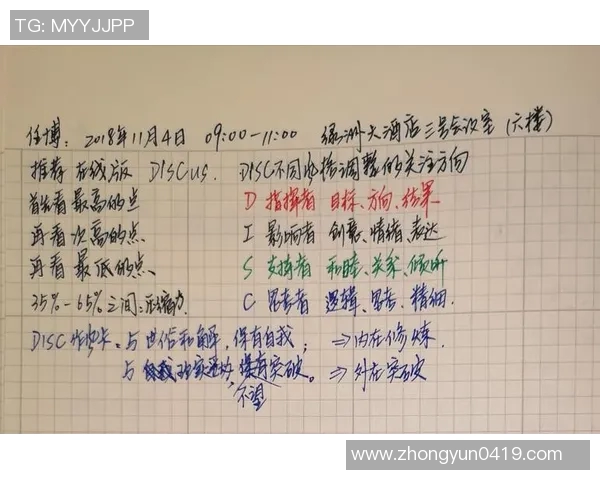 TG: MYYJJPP
任博: 2018年11月4日 09:00-11:00 绿洲大酒店三号会议室(六楼)
推荐在线版 DISCUS. DISC不同性格调整的关注方向
首先看最高的点 D 指挥者 目标、方向、结果
再看次高的点 I 影响者 创意、情绪、表达
再看最低的点、 S 支持者 和睦、关系、倾听
35%-65%之间: C 思考者 逻辑、思考、精细.
DISC 与世俗和解,保有自我; ⇒内在修炼
与 突破。⇒外在突破
不望
www.zhongyun0419.com